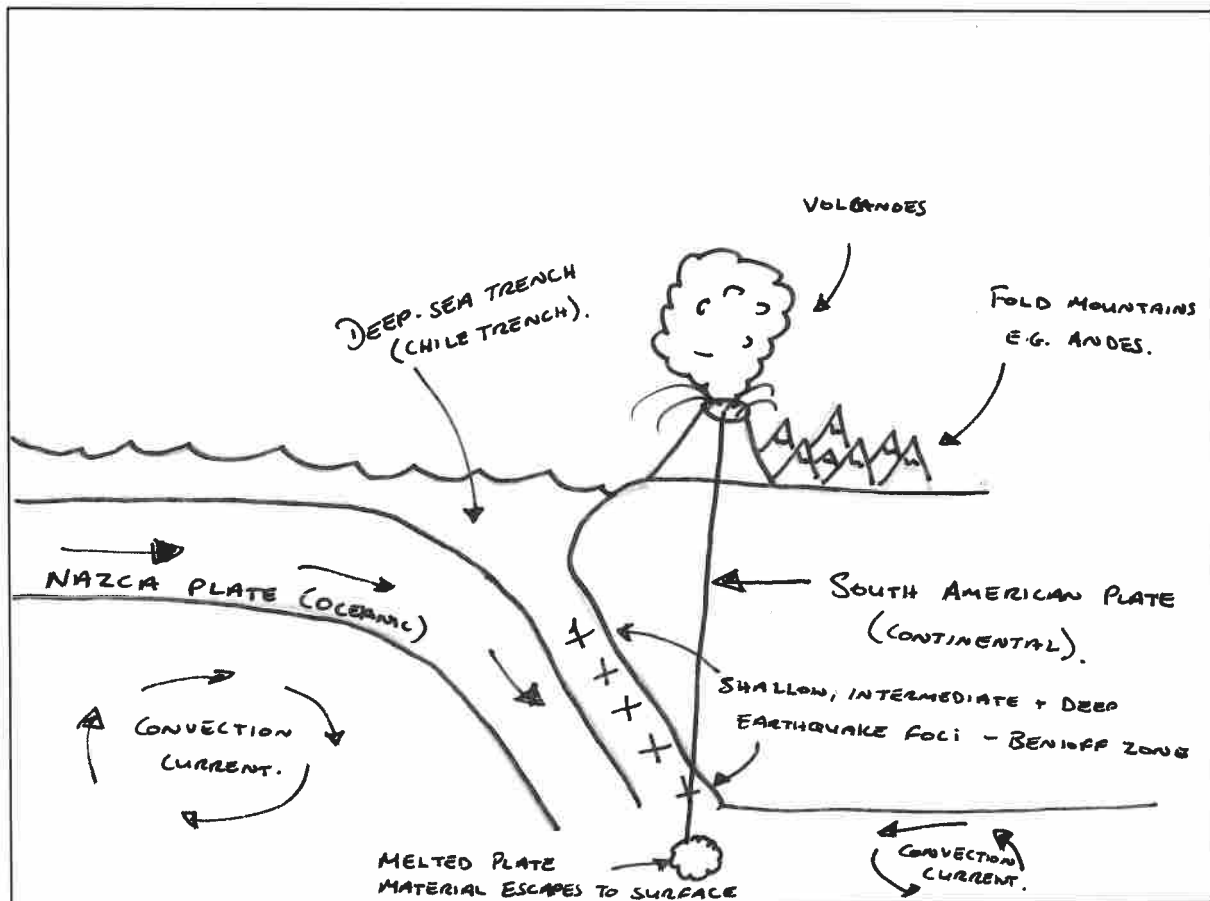 VOLCANOES
DEEP-SEA TRENCH
(CHILE TRENCH).
FOLD MOUNTAINS
E.G. ANDES.
NAZCA PLATE (OCEANIC)
SOUTH AMERICAN PLATE
(CONTINENTAL).
SHALLOW, INTERMEDIATE + DEEP
EARTHQUAKE FOCI - BENIOFF ZONE
CONVECTION
CURRENT.
MELTED PLATE
MATERIAL ESCAPES TO SURFACE
CONVECTION
CURRENT.